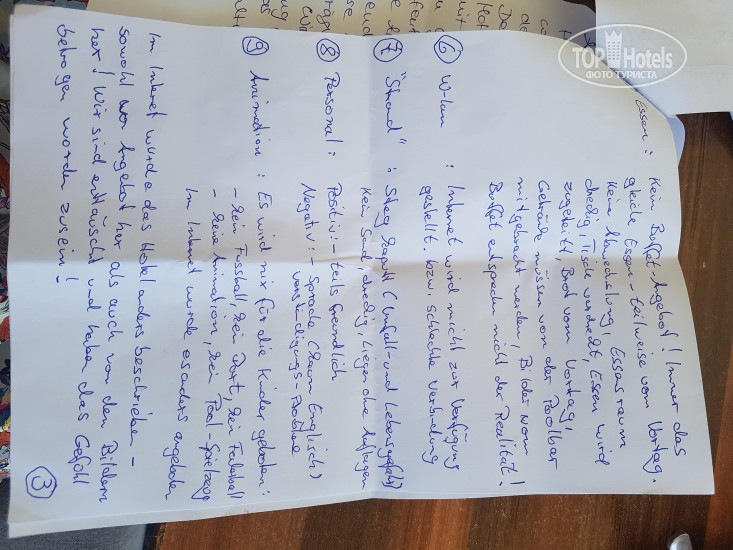 TOP Hotels
ФОТО ТУРИСТА
Essen : Kein Büffet-Angebot! Immer das
gleiche Essen - teilweise vom Vortag.
Keine Abwechslung, Essensraum
dreckig, Tische verdreckt, Essen wird
zugeteilt, Brot vom Vortag,
Getränke müssen von der Poolbar
mitgebracht werden, Bilder vom
Büffet entsprechen nicht der Realität!
6 W-lan : Internet wird nicht zur Verfügung
gestellt. bzw. schlechte Verbindung
7 "Strand" : Steg kaputt (Unfall- und Lebensgefahr)
kein Sand, dreckig, Liege ohne Auflagen
8 Personal : Positiv: - teils freundlich
Negativ: - Sprache (kaum Englisch)
Verständigungs-Probleme
9 Animation : Es wird nix für die Kinder geboten:
- kein Fussball, kein Dart, kein
- keine Animation, kein Pool-Spielzeug
Im Internet wurde es anders angeboten
Im Internet wurde das Hotel anders beschrieben -
sowohl vom Angebot her als auch von den Bildern
her! Wir sind enttäuscht und haben das Gefühl
betrogen worden zu sein!
3